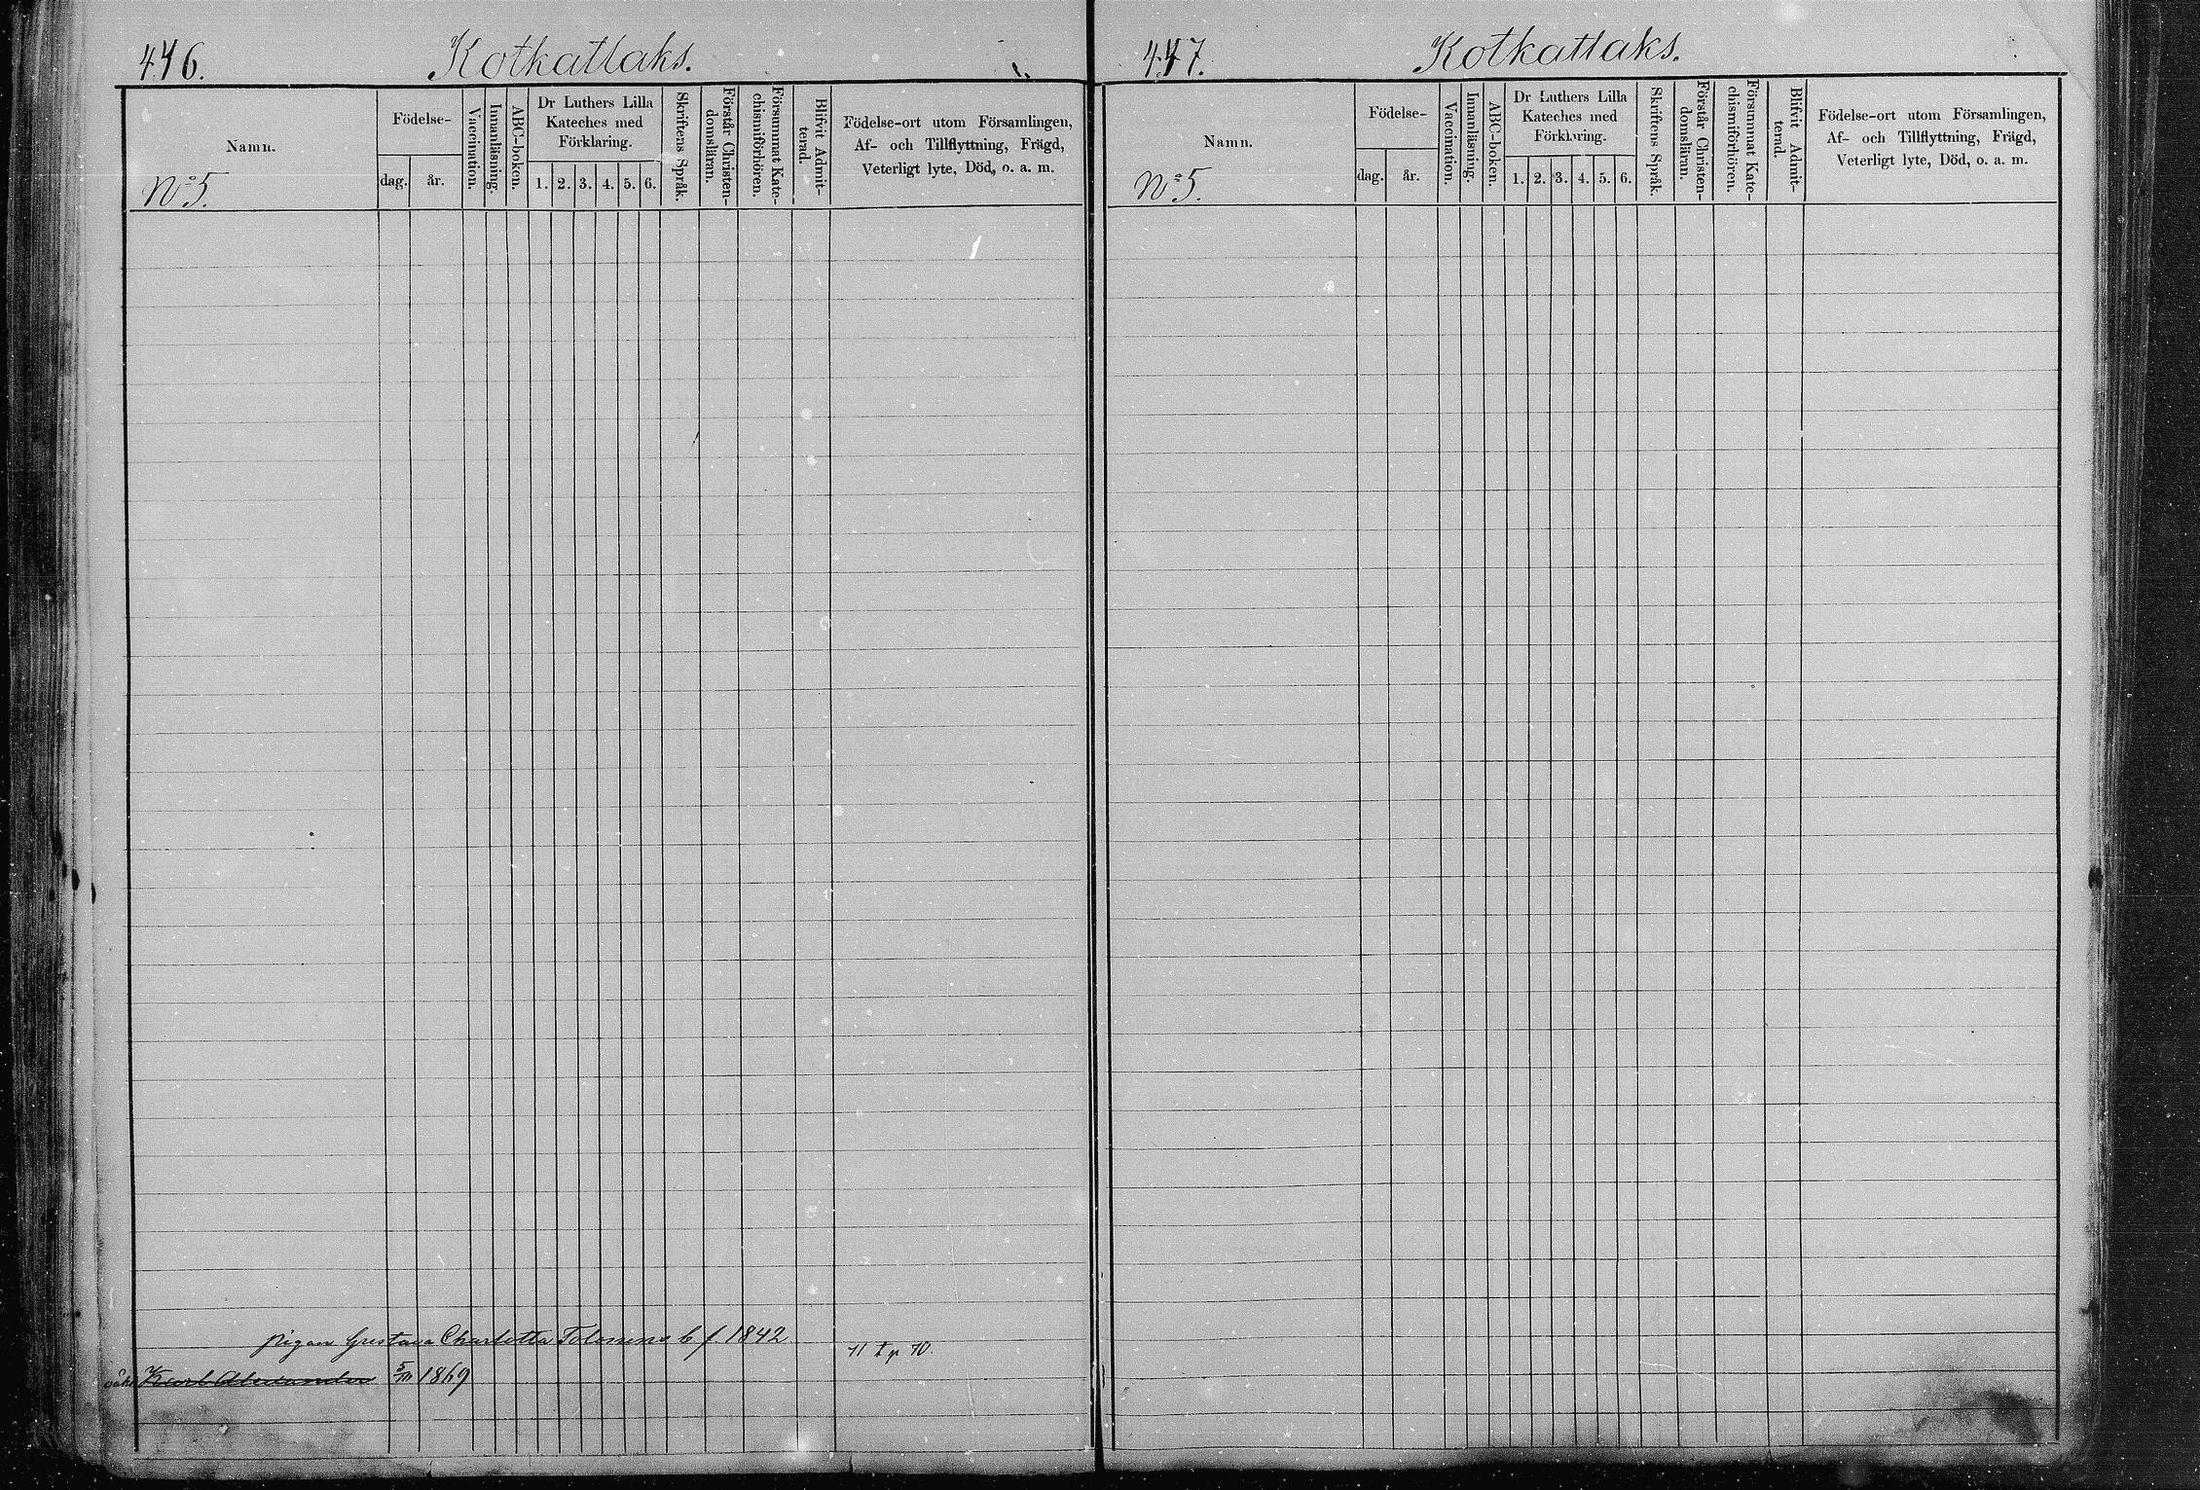 446.
Kotkatlaks.
Namn.
No 5.
Födelse-
dag.
år.
Vaccination.
Innanläsning.
ABC-boken.
Dr Luthers Lilla
Kateches med
Förklaring.
1. 2. 3. 4. 5. 6.
Skriftens Språk.
Förstår Christen-
domsläran.
Försummat Kate-
chismiförhören.
Blifvit Admit-
terad.
Födelse-ort utom Församlingen,
Af- och Tillflyttning, Frägd,
Veterligt lyte, Död, o. a. m.
pigan Gustava Charlotta Tolonens b f 1842
Karl Alexander 5/10 1869
447.
Kotkatlaks.
Namn.
No 5.
Födelse-
dag.
år.
Vaccination.
Innanläsning.
ABC-boken.
Dr Luthers Lilla
Kateches med
Förklaring.
1. 2. 3. 4. 5. 6.
Skriftens Språk.
Förstår Christen-
domsläran.
Försummat Kate-
chismiförhören.
Blifvit Admit-
terad.
Födelse-ort utom Församlingen,
Af- och Tillflyttning, Frägd,
Veterligt lyte, Död, o. a. m.